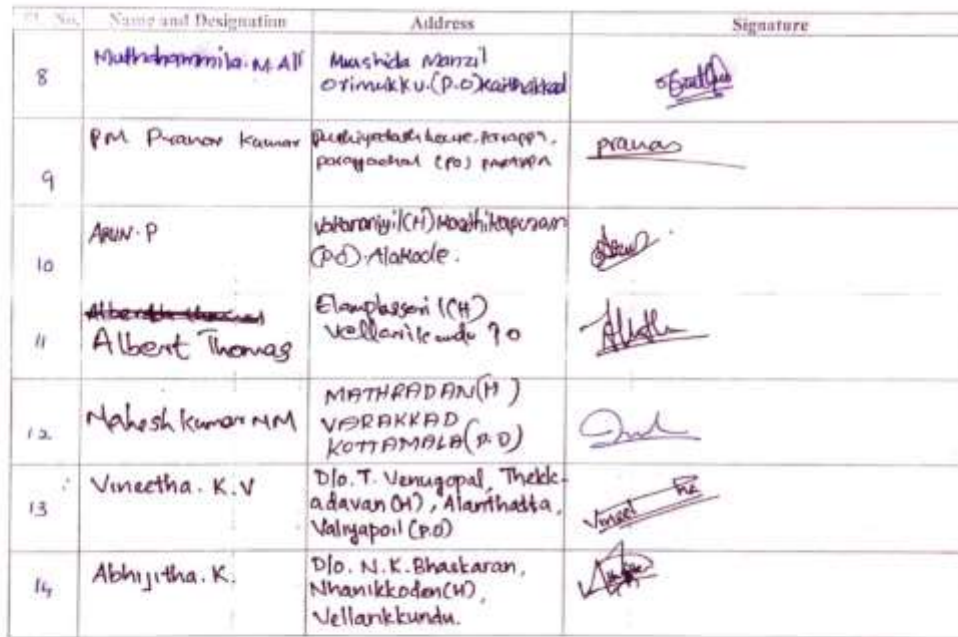 Sl. No. Name and Designation Address Signature
8 M. Ali Murshida Manzil
Orimukku.(P.O)Kaithakkad
9 PM Pranav Kumar house,
(PO)
pranav
10 ARUN.P
(P.O).Alakode.
11 Albert Thomas Elamplasseri (H)
Vellarikundu PO
12 Mahesh Kumar MM MATHRADAN(H)
VARAKKAD
KOTTAMALA(P.O)
13 Vineetha. K.V D/o. T. Venugopal, Thekk-
adavan (H), Alanthatta,
Valiyapoil (P.O)
Vineetha
14 Abhijitha. K. D/o. N.K. Bhaskaran,
Nhanikkoden(H),
Vellarikkundu.